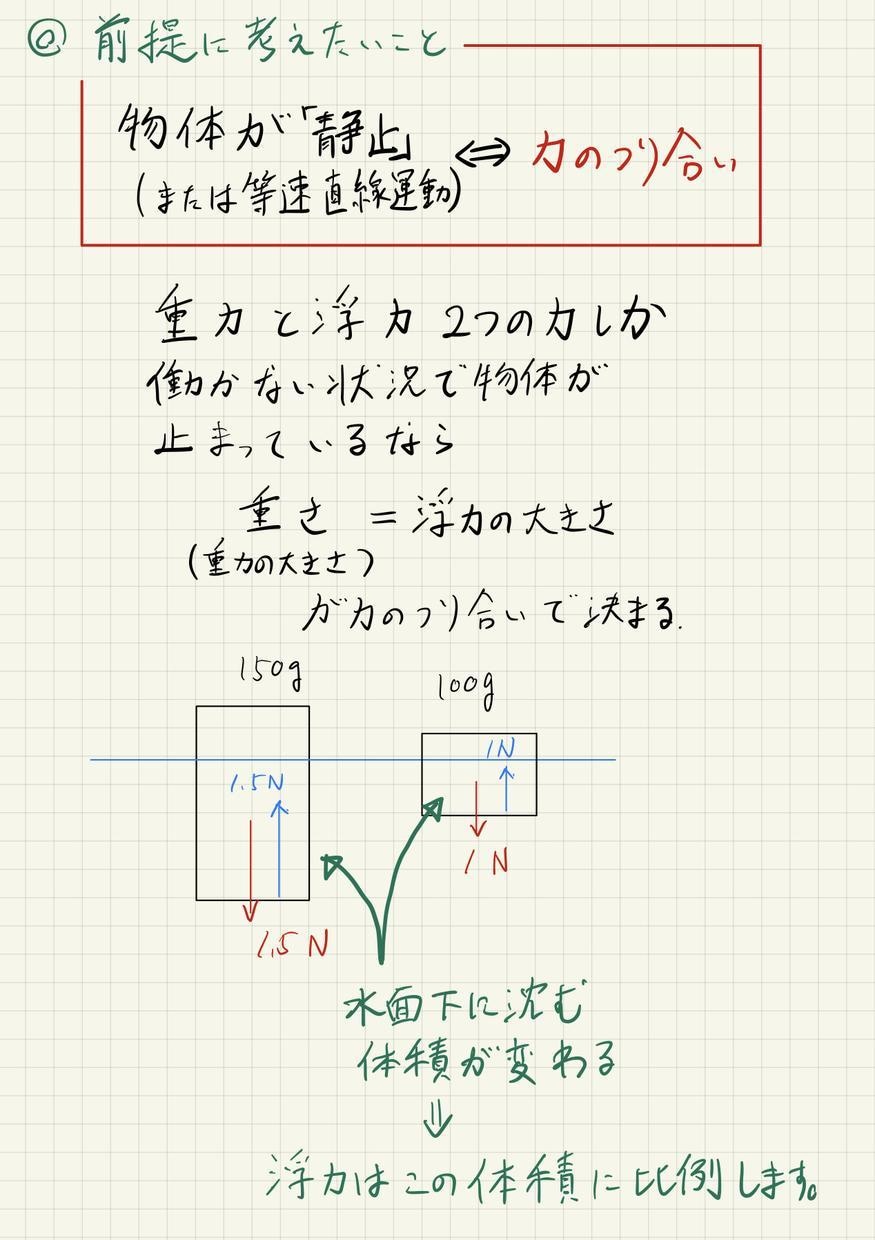 @ 前提に考えたいこと
物体が「静止」 ⇔ 力のつり合い
(または等速直線運動)
重力と浮力 2つの力しか
働かない状況で物体が
止まっているなら
重さ = 浮力の大きさ
(重力の大きさ)
が力のつり合いで決まる.
150g
100g
1N
1.5N
1N
1.5N
水面下に沈む
体積が変わる
⇓
浮力はこの体積に比例します。